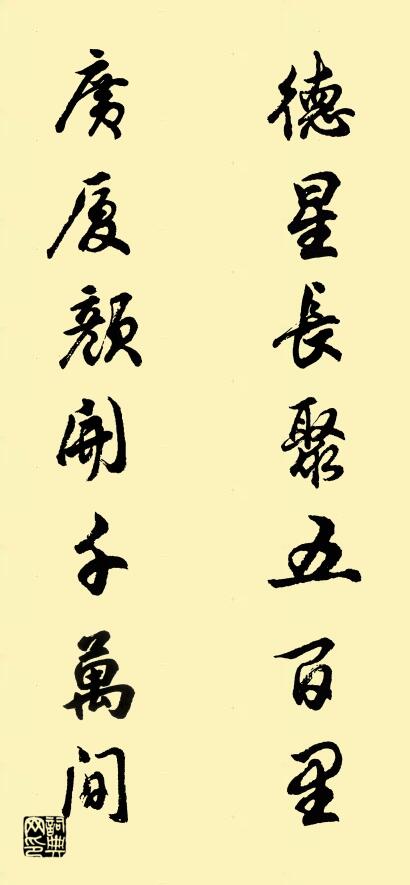 德星長聚五百里
廣厦顔開千萬间
詞典网印